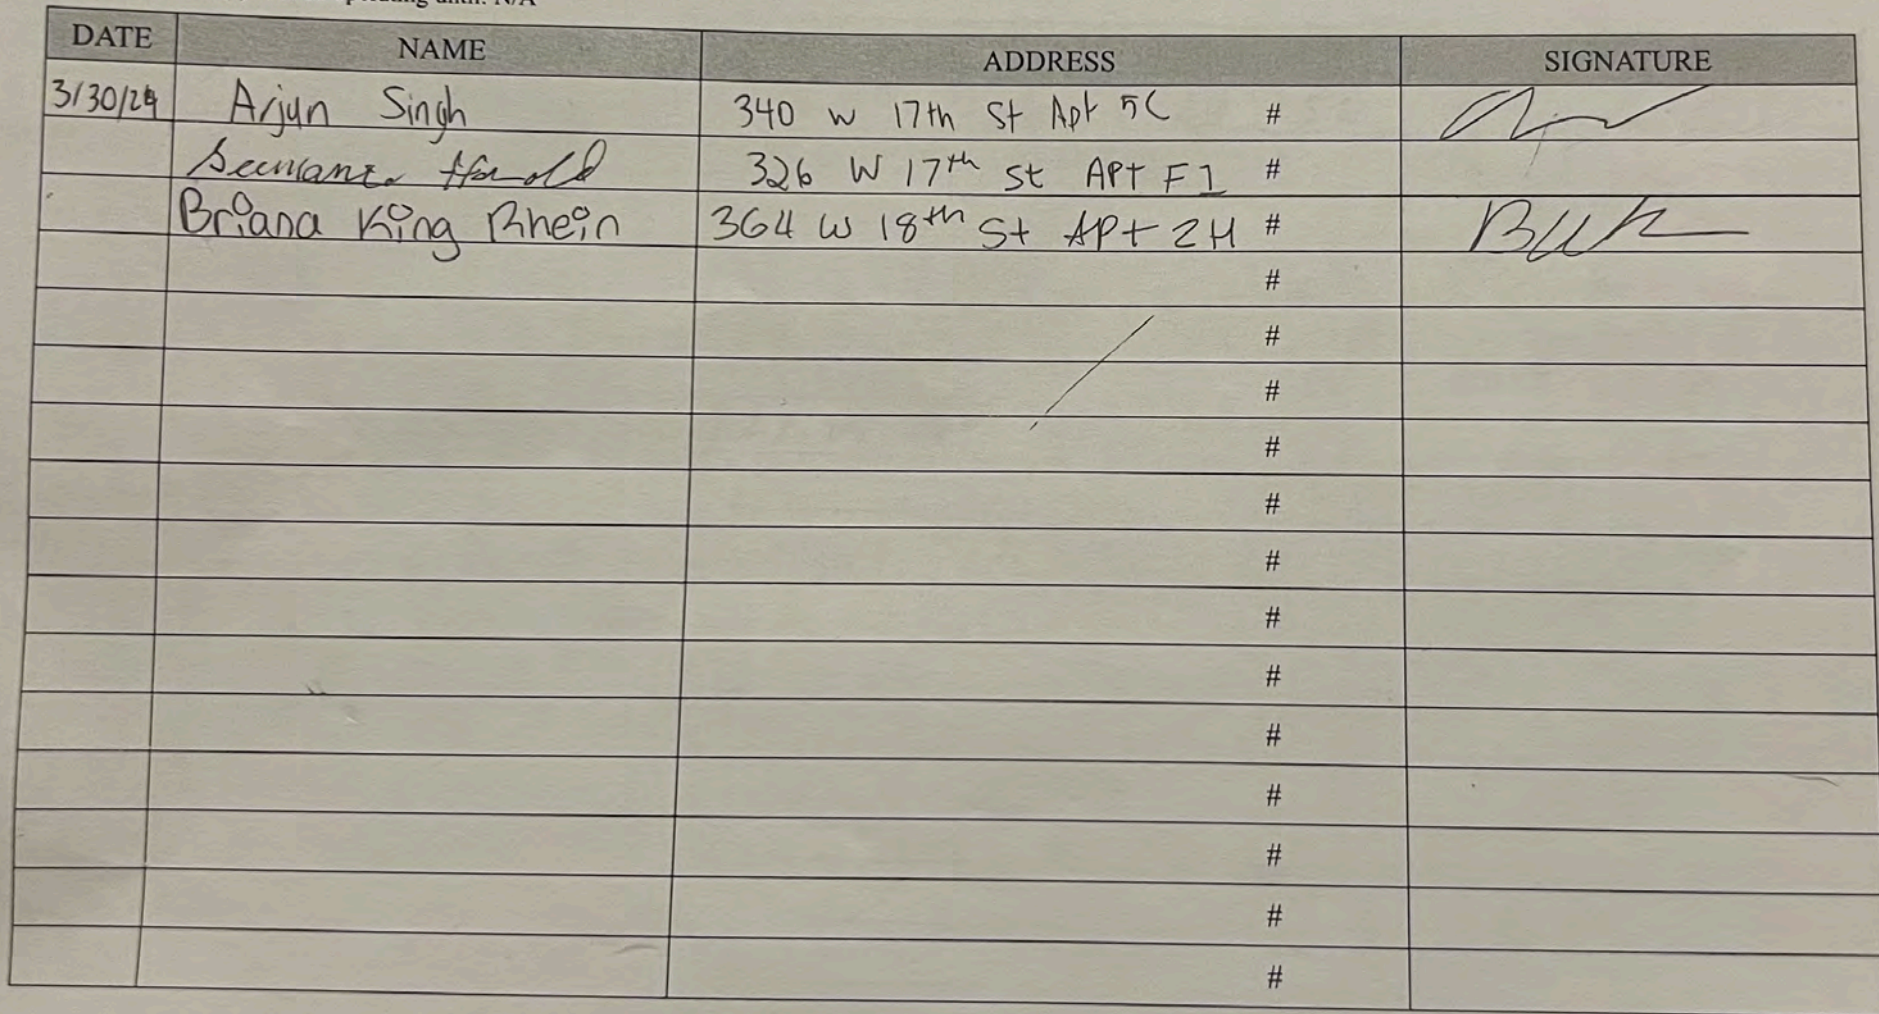 N/A
DATE NAME ADDRESS SIGNATURE
3/30/24 Arjun Singh 340 W 17th St Apt 5C #
326 W 17th St APt F1 #
Briana King Rhein 364 W 18th St APt 2H #
#
#
#
#
#
#
#
#
#
#
#
#
#